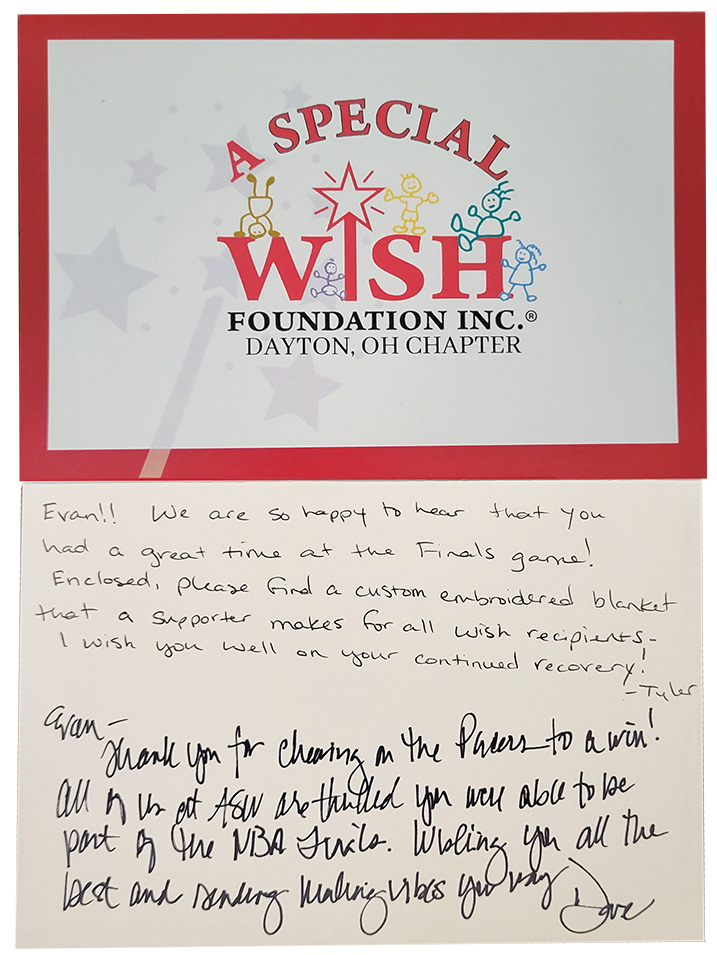 A SPECIAL
WISH
FOUNDATION INC.®
DAYTON, OH CHAPTER
Evan!! We are so happy to hear that you
had a great time at the Finals game!
Enclosed, please find a custom embroidered blanket
that a supporter makes for all wish recipients-
I wish you well on your continued recovery!
-Tyler
Evan-
Thank you for cheering on the Pacers to a win!
All of us at ASW are thrilled you were able to be
part of the NBA Finals. Wishing you all the
best and sending healing vibes your way